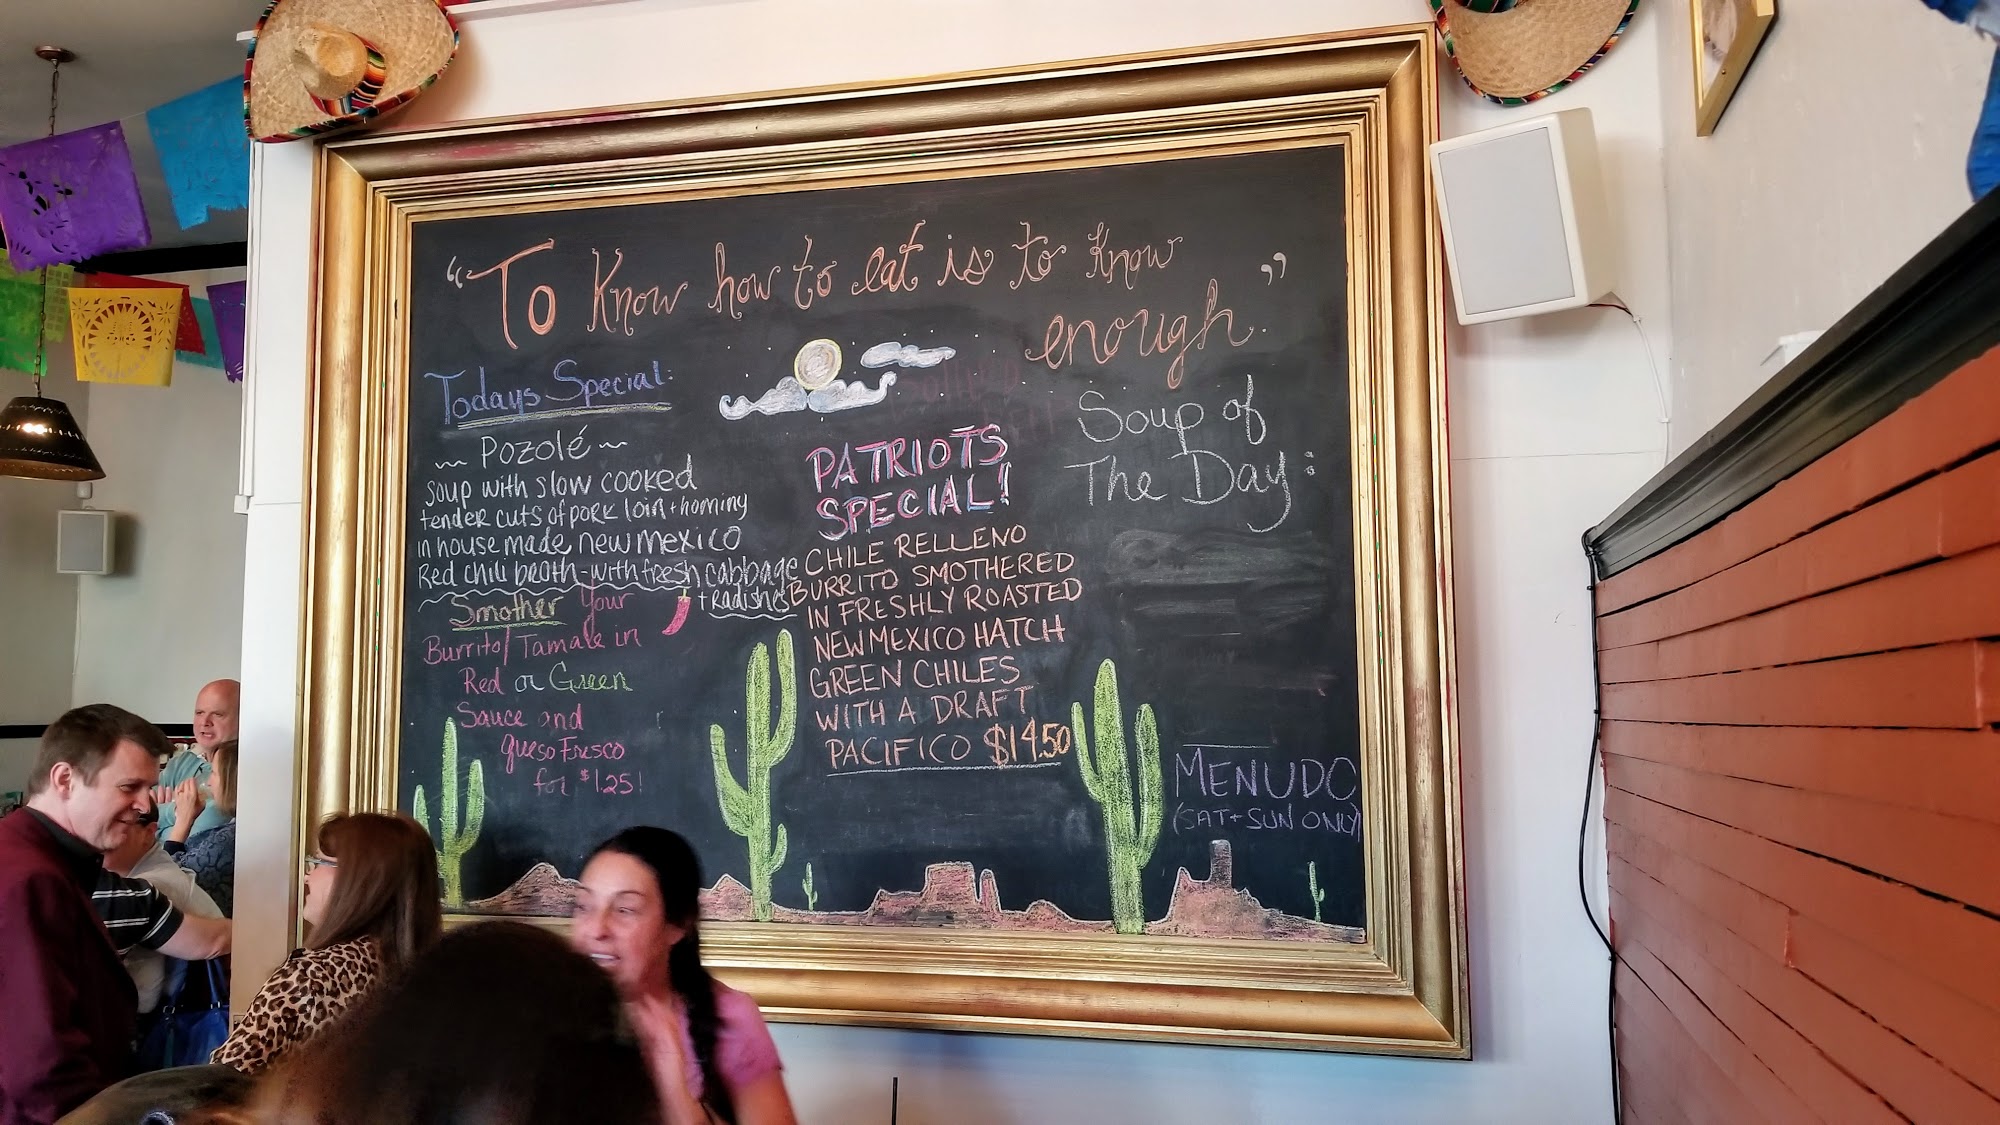 “To Know how to eat is to know
enough.”
Todays Special:
~ Pozolé ~
soup with slow cooked
tender cuts of pork loin + hominy
in house made new mexico
Red chili broth - with fresh cabbage
+ Radishes
Smother Your
Burrito/Tamale in
Red or Green
Sauce and
queso Fresco
for $1.25!
PATRIOTS
SPECIAL!
CHILE RELLENO
BURRITO SMOTHERED
IN FRESHLY ROASTED
NEW MEXICO HATCH
GREEN CHILES
WITH A DRAFT
PACIFICO $14.50
Soup of
The Day:
MENUDO
(SAT + SUN ONLY)